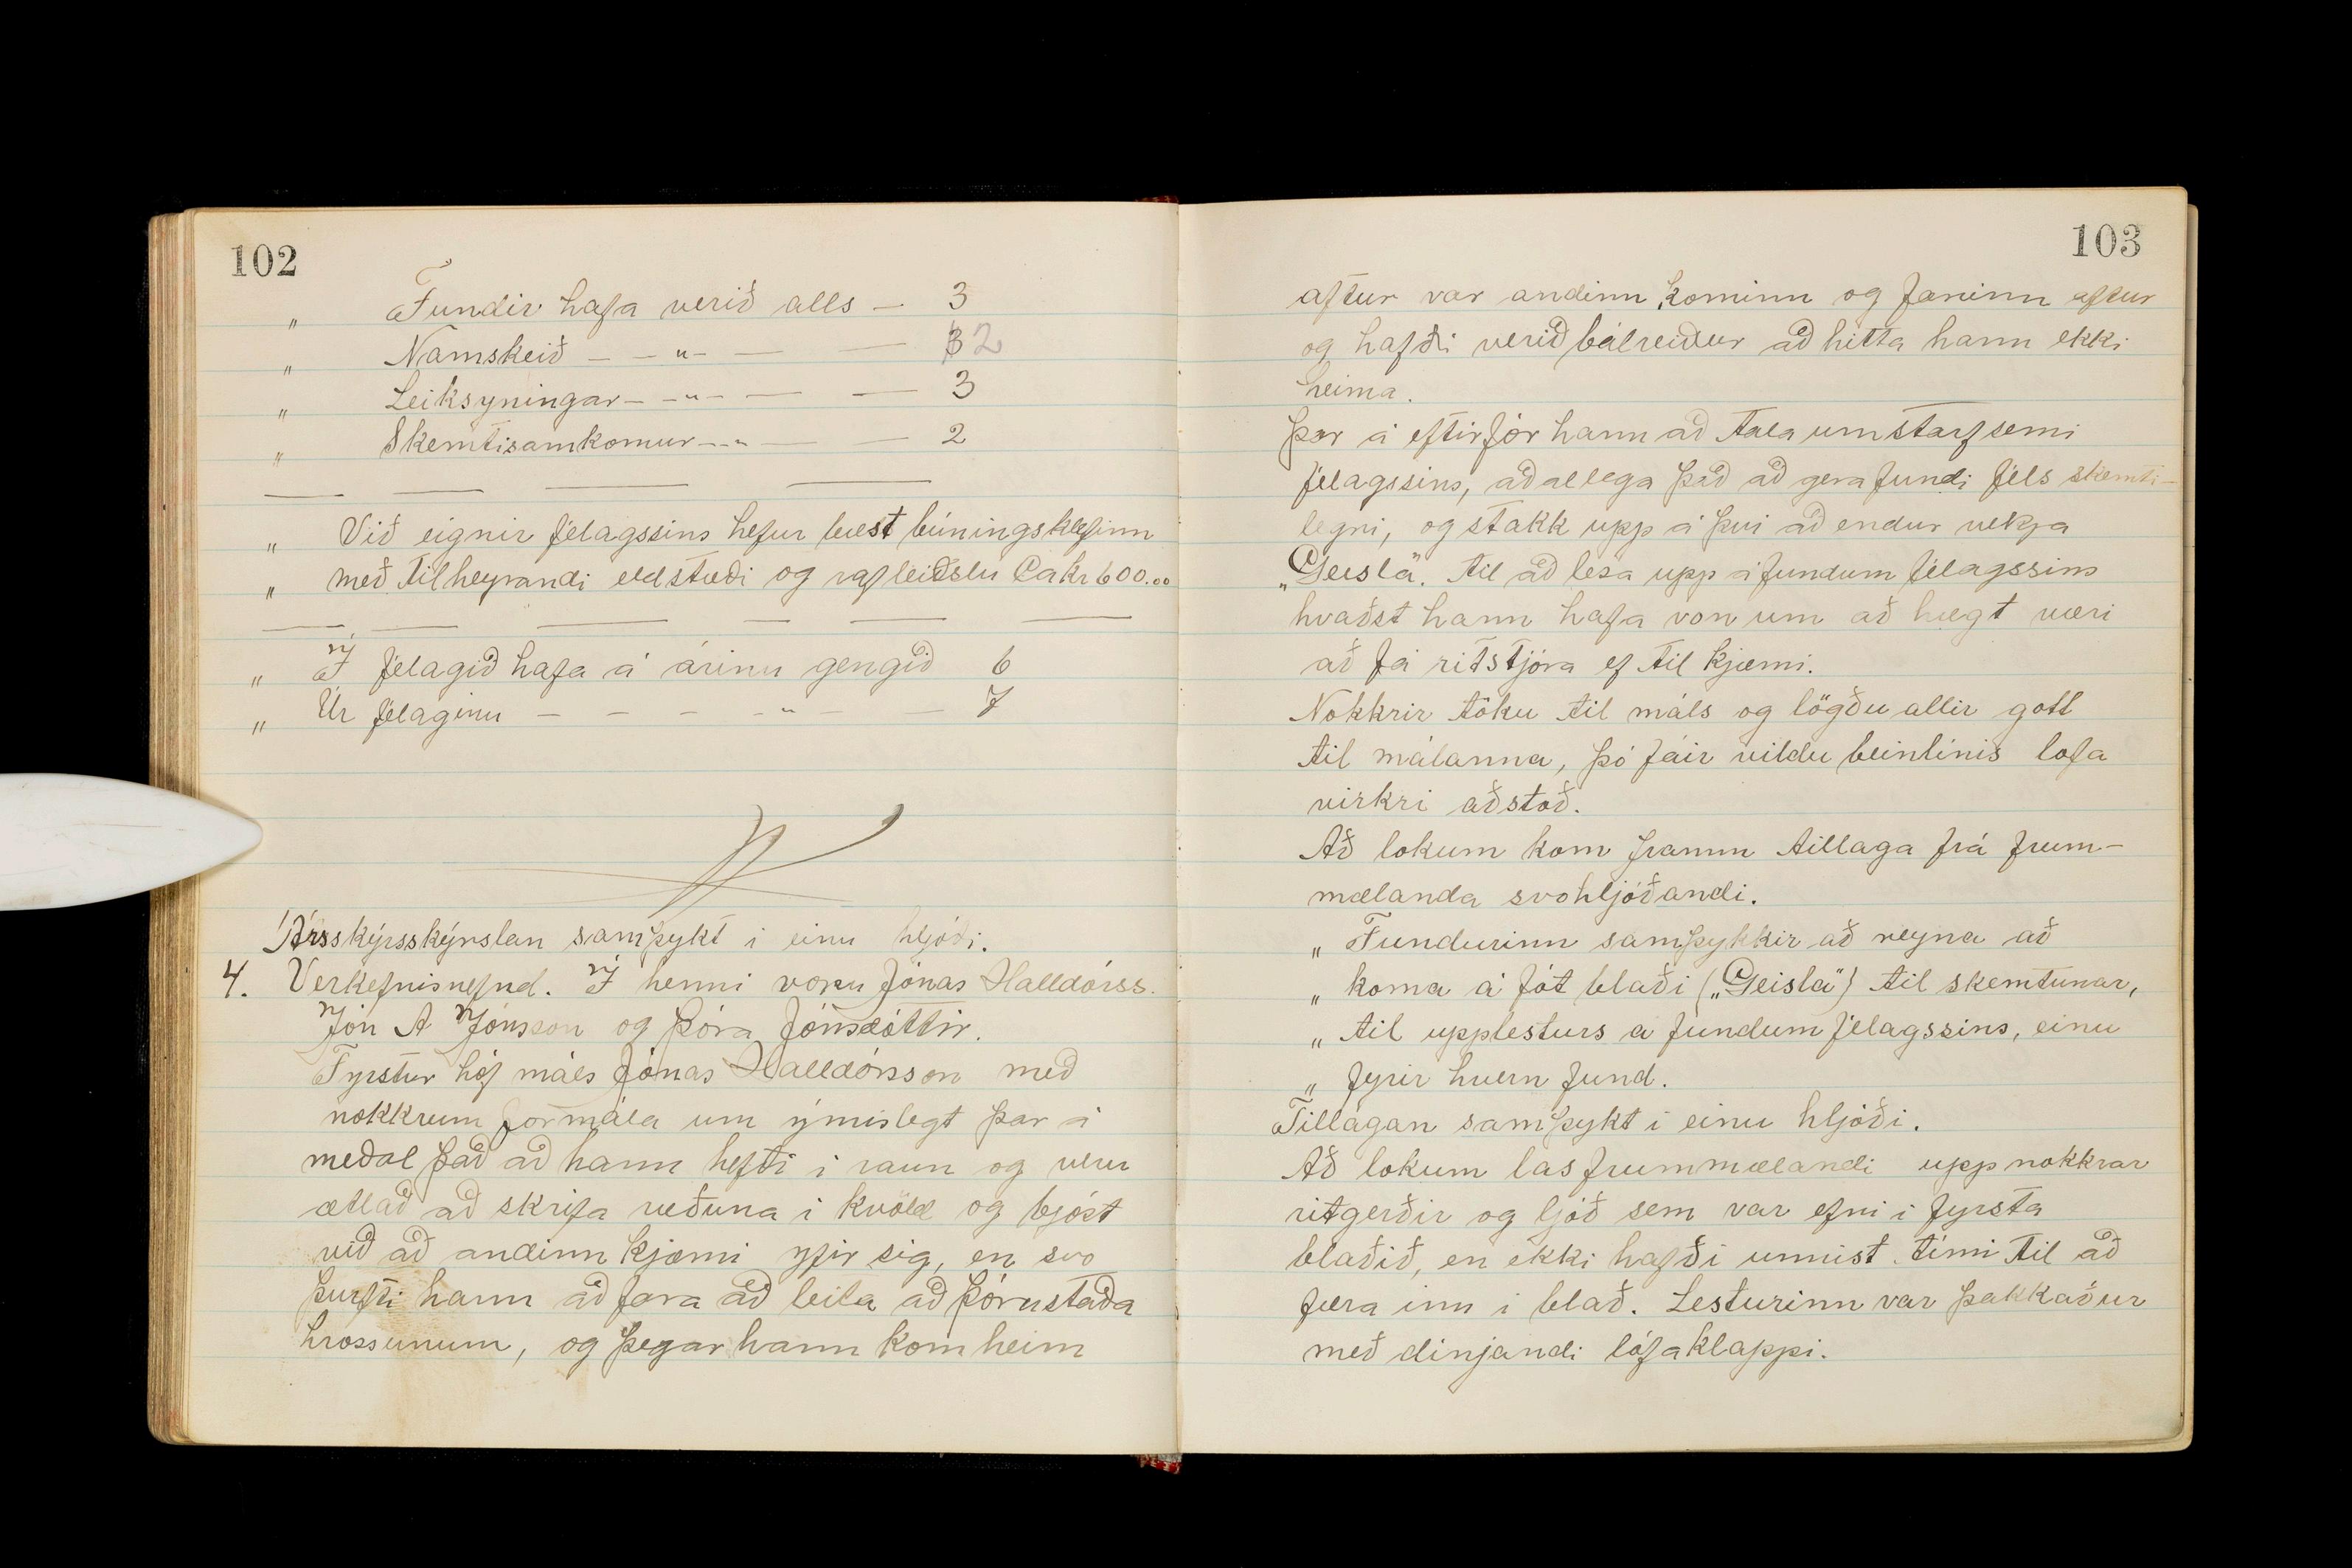 102
„ Fundir hafa verið alls — 3
„ Namskeið — — „ — — — 2
„ Leiksyningar — — „ — — — 3
„ Skemtisamkomur — — „ — — 2
„ Við eignir fjelagssins hefur bæst búningsklefinn
„ með tilheyrandi eldstæði og rafleiðslu Ca kr 600.00
„ Í fjelagið hafa á árinu gengið 6
„ Úr fjelaginu — — — — „ — — 7
Ársskýrsskýrslan samþykt i einu hljóði.
4. Verkefnisnefnd. Í henni voru Jónas Halldórss.
Jón A Jónsson og Þóra Jónsdóttir.
Fyrstur hóf máls Jónas Halldórsson með
nokkrum formála um ýmislegt þar á
meðal það að hann hefði i raun og veru
ætlað að skrifa ræðuna i kvöld og bjóst
við að andinn kjæmi yfir sig, en svo
þurfti hann að fara að leita að Þórustaða
hrossunum, og þegar hann kom heim
103
aftur var andinn kominn og farinn aftur
og hafði verið bálreiður að hitta hann ekki
heima.
Þar á eftir fór hann að tala um starfsemi
fjelagssins, aðallega það að gera fundi fjels skemti-
legri, og stakk upp á þvi að endur vekja
„Geisla“. til að lesa upp á fundum fjelagssins
hvaðst hann hafa von um að hægt væri
að fá ritstjóra ef til kjæmi.
Nokkrir tóku til máls og lögðu allir gott
til málanna, þó fáir vildu beinlínis lofa
virkri aðstoð.
Að lokum kom framm tillaga frá frum-
mælanda svohljóðandi.
„ Fundurinn samþykkir að reyna að
„ koma á fót blaði („Geisla“) til skemtunar,
„ til upplesturs a fundum fjelagssins, einu
„ fyrir hvern fund.
Tillagan samþykt i einu hljóði.
Að lokum las frummælandi upp nokkrar
ritgerðir og ljóð sem var efni i fyrsta
blaðið, en ekki hafði unnist tími til að
færa inn i blað. Lesturinn var þakkaður
með dinjandi lófaklappi.